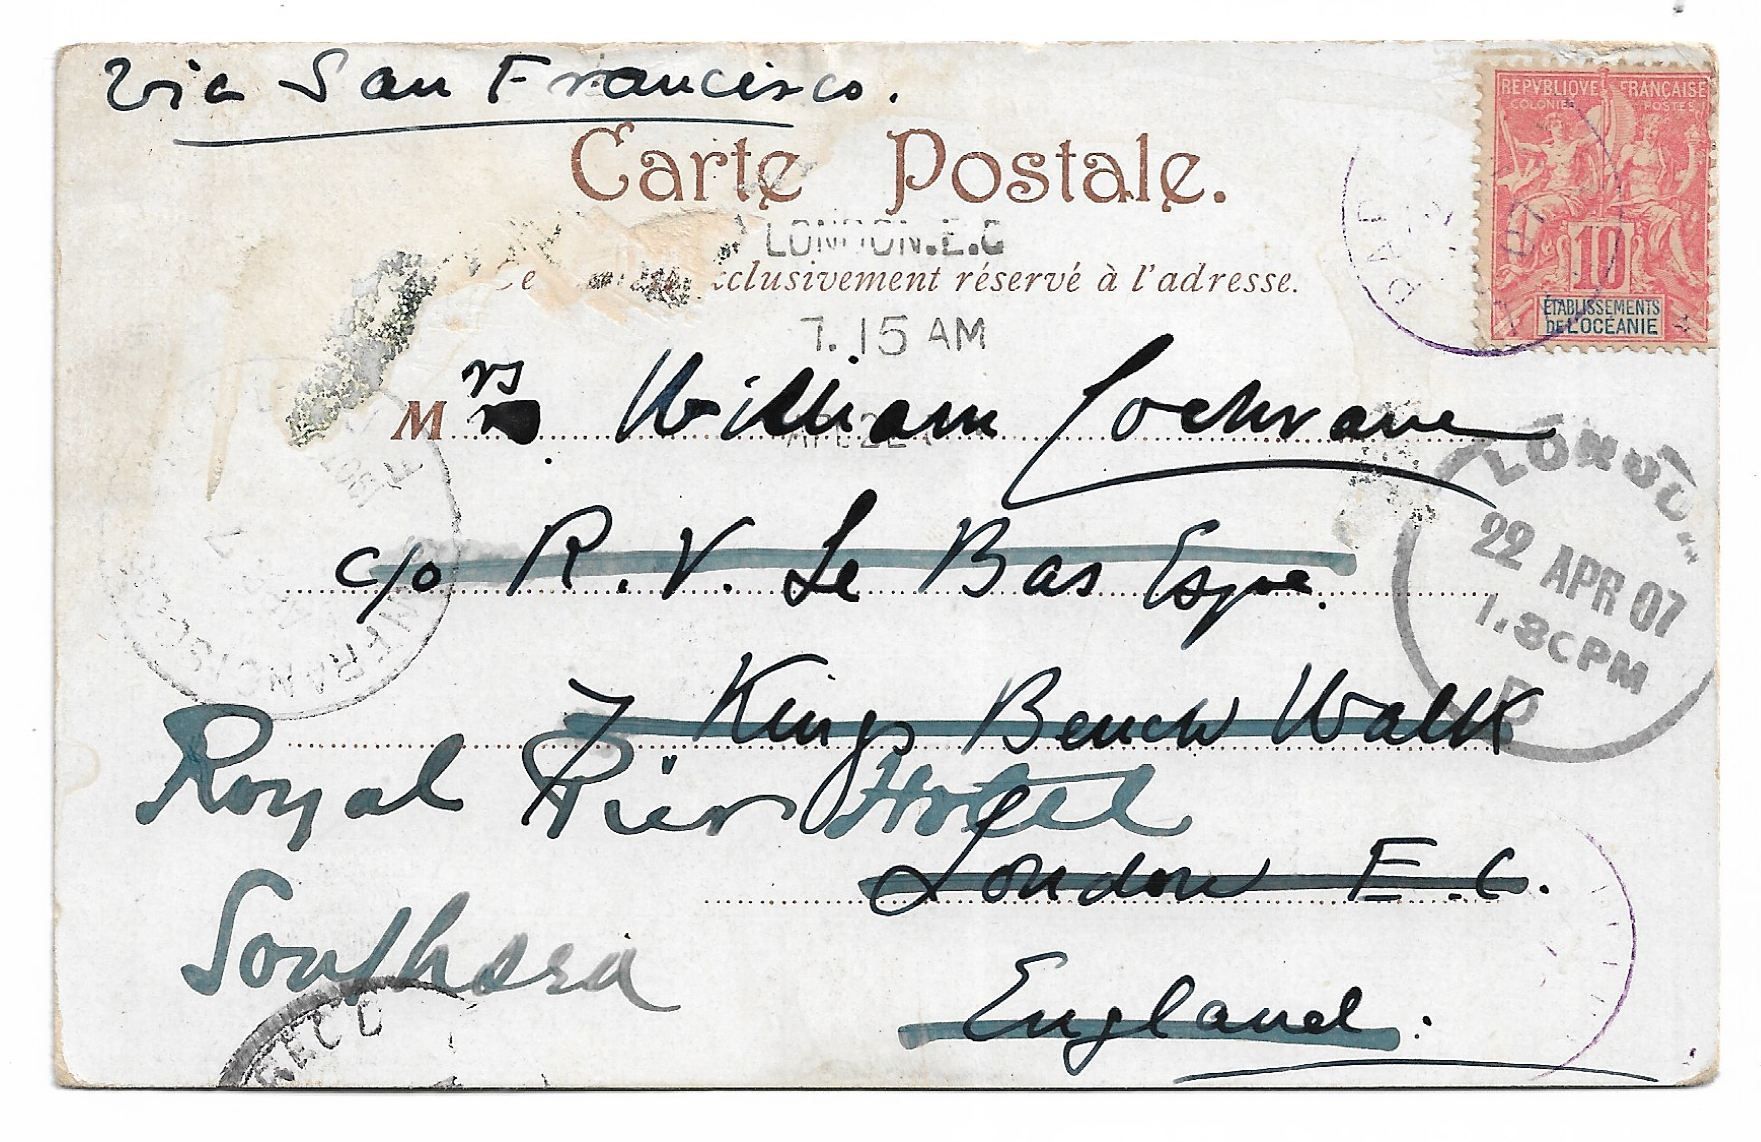 via San Francisco.
REPVBLIQVE FRANÇAISE
COLONIES POSTES
10
ÉTABLISSEMENTS
DE L'OCÉANIE
Carte Postale.
LONDON.E.C
Ce exclusivement réservé à l'adresse.
7.15 AM
Mrs William Cochrane
AP 22
c/o R. V. Le Bas Esqre.
7 Kings Bench Walk
London E.C.
England.
Royal Pier Hotel
Southsea
LONDON
22 APR 07
1.30PM
SAN FRANCISCO
RECD
PAPEETE